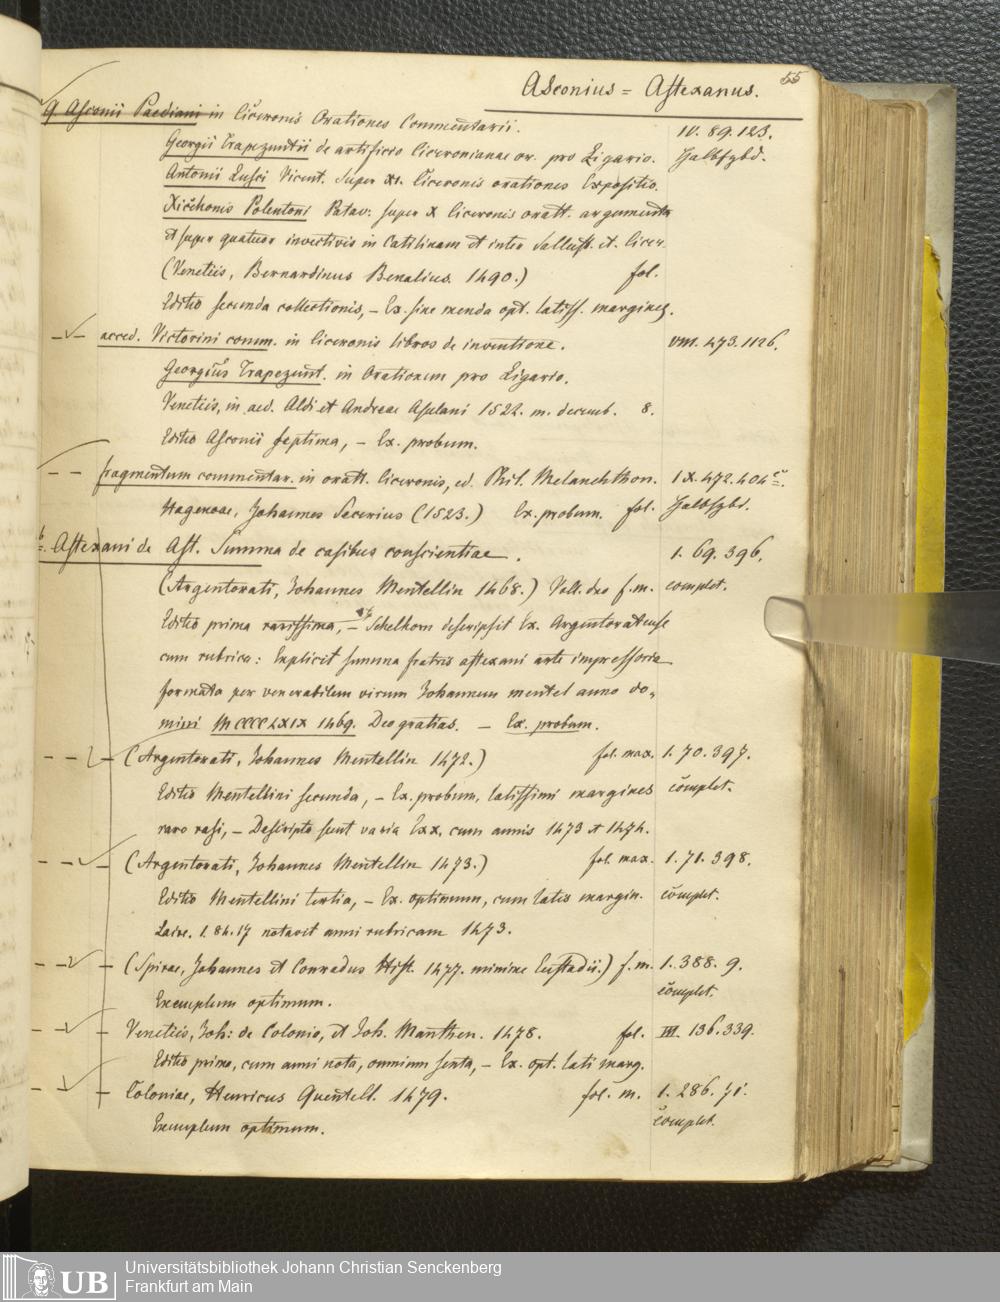 Asconius = Astexanus. 55
Q. Asconii Paediani in Ciceronis Orationes Commentarii. IV. 89. 123.
Georgii Trapezuntii de artificio Ciceronianae or. pro Ligario. Halbfzbd.
Antonii Lusci Vicent. super XI. Ciceronis orationes Expositio.
Xicchonis Polentoni Patav: super X Ciceronis oratt. argumenta
et super quatuor invectivis in Catilinam et inter Sallust. et. Cicer.
(Venetiis, Bernardinus Benalius. 1490.) fol.
Editio secunda collectionis, – Ex. sine menda opt. latiss. margines.
– – acced. Victorini comm. in Ciceronis libros de inventione. VIII. 473. 1126.
Georgius Trapezunt. in Orationem pro Ligario.
Venetiis, in aed. Aldi et Andreae Asulani 1522. m. decemb. 8.
Editio Asconii septima, – Ex. probum.
– – fragmentum commentar. in oratt. Ciceronis, ed. Phil. Melanchthon. IX. 472. 404
Hagenoae, Johannes Secerius (1523.) Ex. probum. fol. Halbfzbd.
Astexani de Ast. Summa de casibus conscientiae. 1. 69. 396.
(Argentorati, Johannes Mentellin 1468.) Voll. duo f. m. complet.
Editio prima rarissima, – Schelhorn descripsit Ex. Argentoratense
cum rubrica: Explicit summa fratris astexani arte impressoria
formata per venerabilem virum Johannem mentel anno do„
mini MCCCCLXIX 1469. Deo gratias. – Ex. probum.
– – – (Argentorati, Johannes Mentellin 1472.) fol. max. 1. 70. 397.
Editio Mentellini secunda, – Ex. probum, latissimi margines complet.
raro rasi, – Descripta sunt varia Exx. cum annis 1473 et 1474.
– – – (Argentorati, Johannes Mentellin 1473.) fol. max. 1. 71. 398.
Editio Mentellini tertia, – Ex. optimum, cum latis margin. complet.
Laire. 1. 84. 17 notavit anni rubricam 1473.
– – – (Spirae, Johannes et Conradus Hist. 1477. minime Eustadii.) f. m. 1. 388. 9.
Exemplum optimum. complet.
– – – Venetiis, Joh: de Colonia, et Joh. Manthen. 1478. fol. III. 136. 339.
Editio prima, cum anni nota, omnium sexta, – Ex. opt. lati marg.
– – – Coloniae, Henricus Quentell. 1479. fol. m. 1. 286. 71.
Exemplum optimum. complet.
UB Universitätsbibliothek Johann Christian Senckenberg
Frankfurt am Main